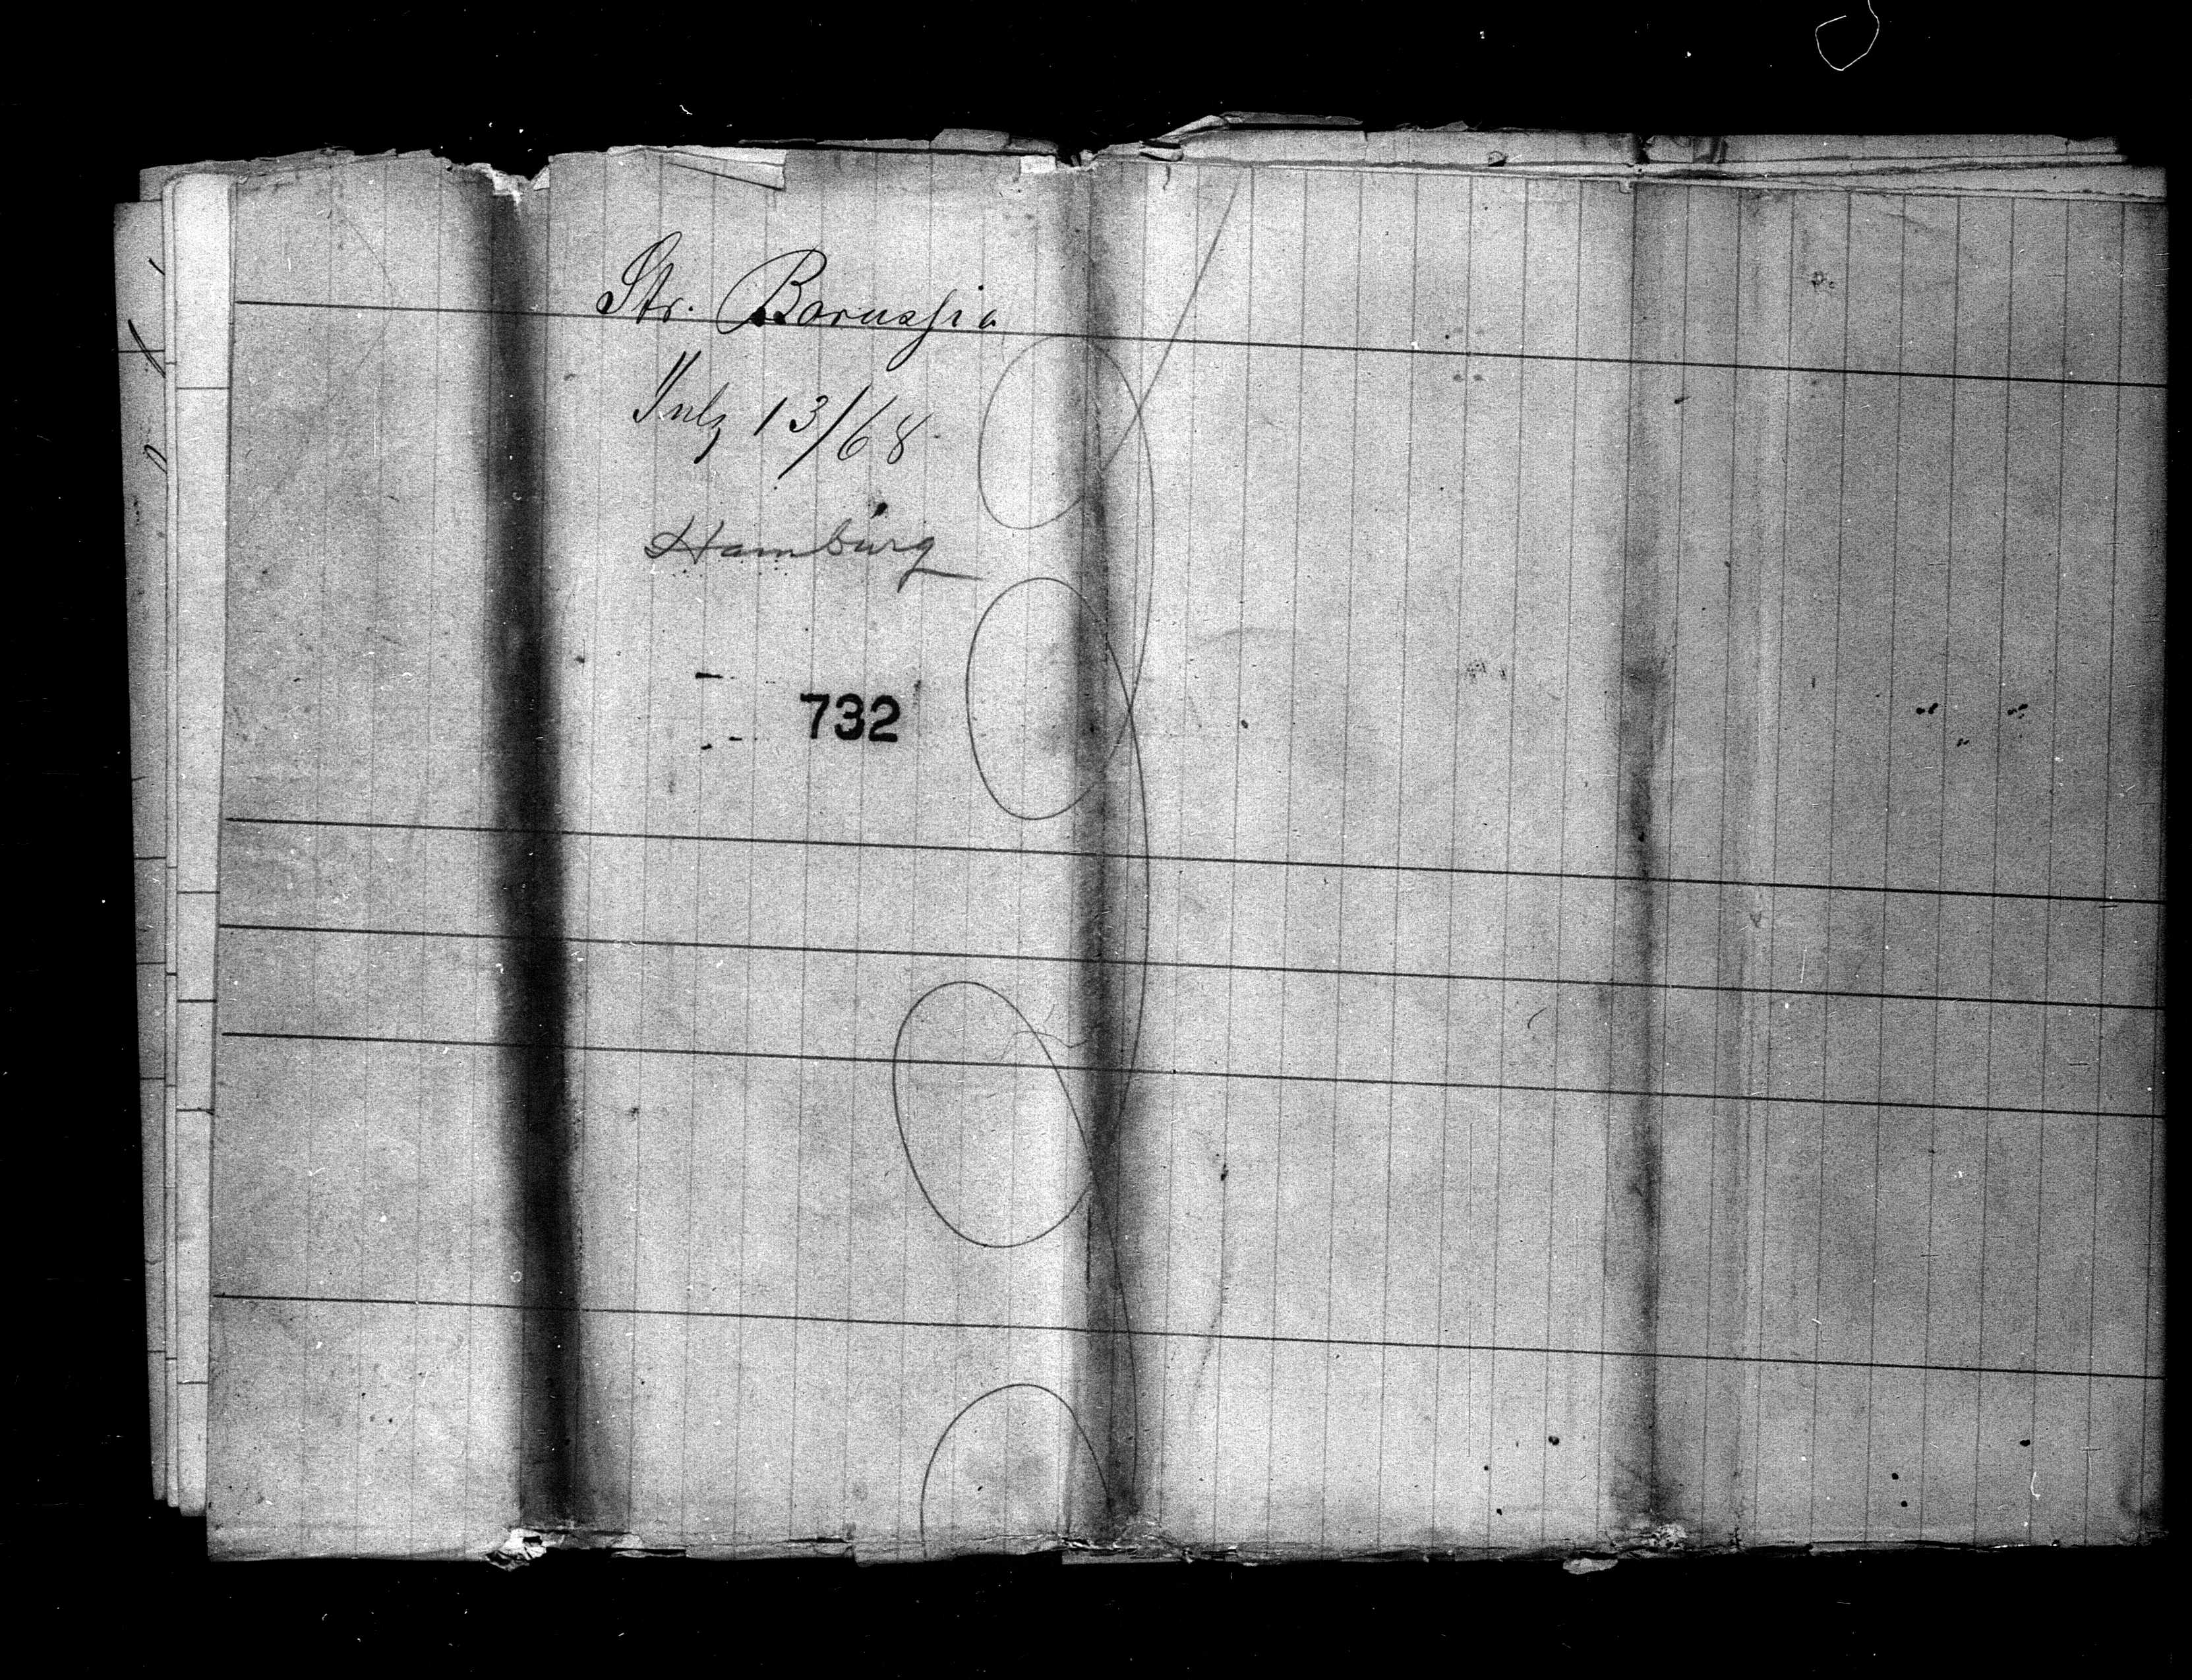 Str. Borussia
July 13/68
Hamburg
732